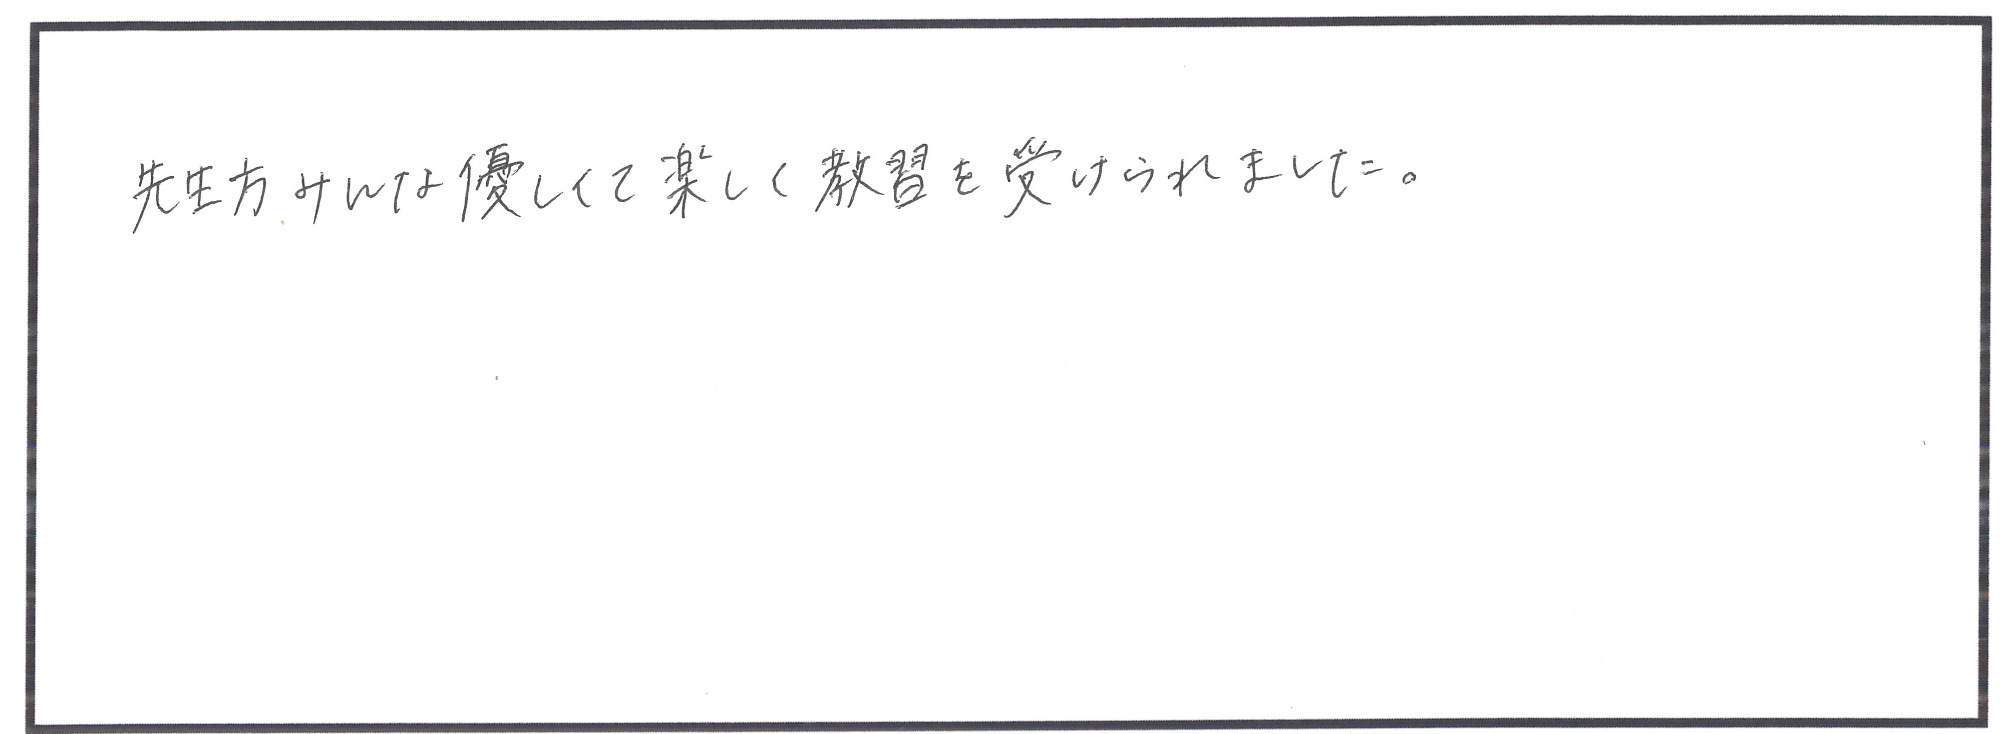 先生方みんな優しくて楽しく教習を受けられました。